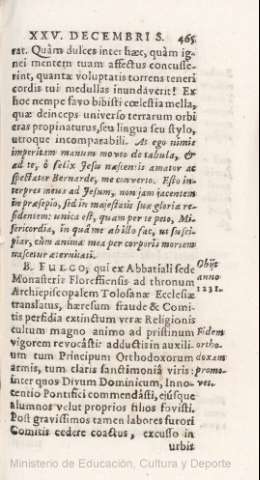 XXV. DECEMBRIS. 465
rat. Quàm dulces inter hæc, quàm ig-
nei mentem tuam affectus concusse-
rint, quantæ voluptatis torrens teneri
cordis tui medullas inundaverit! Ex
hoc nempe favo bibisti cœlestia mella,
quæ deinceps universo terrarum orbi
eras propinaturus, seu lingua seu stylo,
utroque incomparabili. At ego nimis
imperitam manum moveo de tabula, &
ad te, ô felix Jesu nascentis amator ac
spectator Bernarde, me converto. Esto in-
terpres meus ad Jesum, non jam jacentem
in præsepio, sed in majestatis suæ gloria re-
sidentem: unica est, quam per te peto, Mi-
sericordia, in quâ me ab illo fac, ut susci-
piar, cùm anima mea per corporis mortem
nascetur æternitati.
B. FULCO, qui ex Abbatiali sede
Monasterii Floreffiensis ad thronum
Archiepiscopalem Tolosanæ Ecclesiæ
translatus, hæresum fraude & Comi-
tis perfidia extinctum veræ Religionis
cultum magno animo ad pristinum
vigorem revocâsti: adductis in auxili-
um tum Principum Orthodoxorum
armis, tum claris sanctimoniâ viris:
inter quos Divum Dominicum, Inno-
centio Pontifici commendâsti, ejúsque
alumnos velut proprios filios fovisti.
Post gravissimos tamen labores furori
Comitis cedere coactus, excusso in
urbis
Obijt
anno
1231.
Fidem
ortho-
doxam
promo-
ves.
Ministerio de Educación, Cultura y Deporte